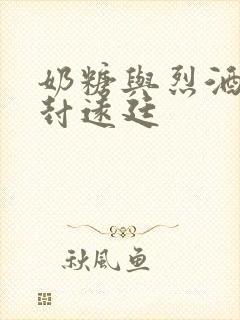 奶糖與烈酒
封遠廷
秋風魚